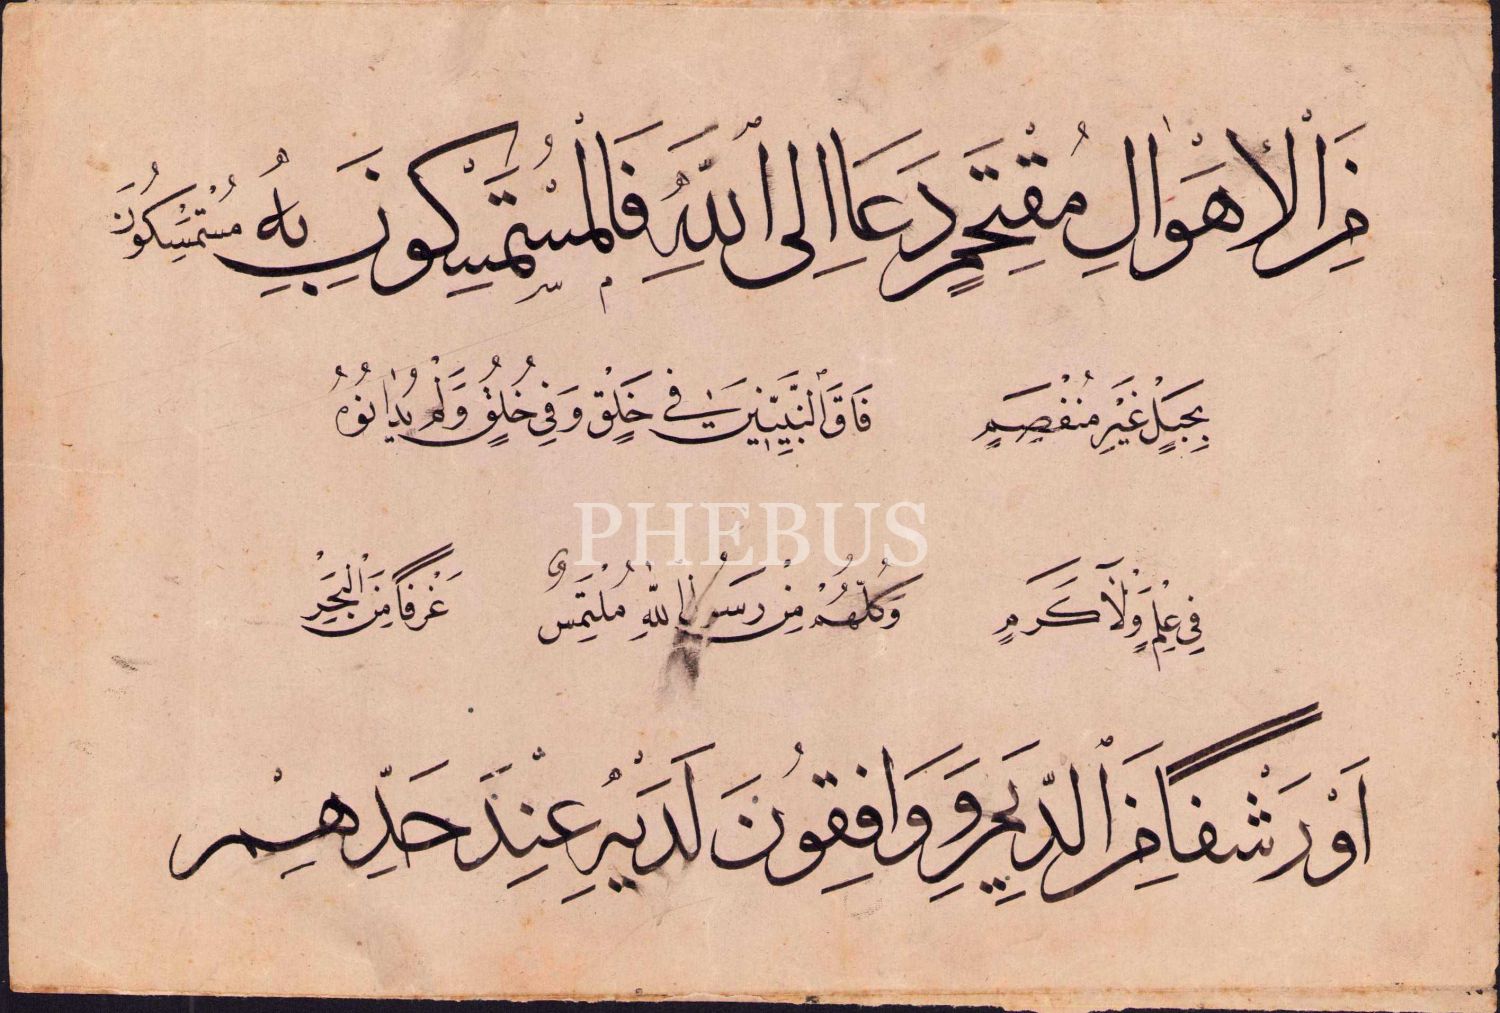 مِنَ الْاَهْوَالِ مُقْتَحِمٍ دَعَا اِلَى اللّٰهِ فَالْمُسْتَمْسِكُونَ بِهِ مُسْتَمْسِكُونَ
بِحَبْلٍ غَيْرِ مُنْفَصِمٍ فَاقَ النَّبِيّٖنَ فٖى خَلْقٍ وَفٖى خُلُقٍ وَلَمْ يُدَانُوهُ
فٖى عِلْمٍ وَلَا كَرَمٍ وَكُلُّهُمْ مِنْ رَسُولِ اللّٰهِ مُلْتَمِسٌ غَرْفًا مِنَ الْبَحْرِ
PHEBUS
اَوْ رَشْفًا مِنَ الدِّيَمِ وَوَاقِفُونَ لَدَيْهِ عِنْدَ حَدِّهِمْ